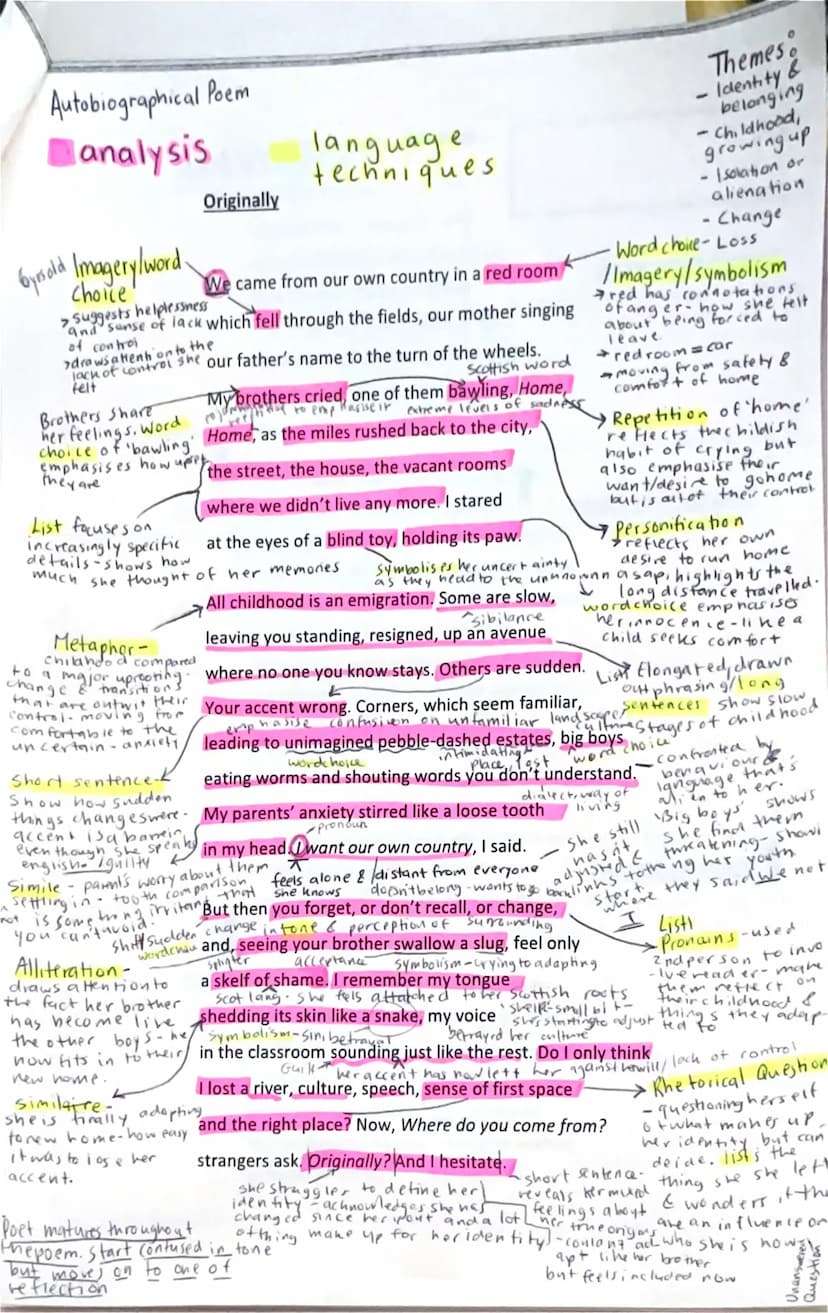 Autobiographical Poem
analysis
language
techniques
Themes:
- Identity &
belonging
- Childhood,
growing up
- Isolation or
alienation
- Change
Originally
6yrs old
Imagery/word
choice
> suggests helplessness
and sense of lack
of control
> draws attention to the
lack of control she
felt
Word choice - Loss
/Imagery/symbolism
→ red has connotations
of anger - how she felt
about being forced to
leave
→ red room = car
→ moving from safety &
comfort of home
We came from our own country in a red room
which fell through the fields, our mother singing
our father's name to the turn of the wheels.
Scottish word
My brothers cried, one of them bawling, Home,
extreme levels of sadness
Home, as the miles rushed back to the city,
the street, the house, the vacant rooms
where we didn't live any more. I stared
at the eyes of a blind toy, holding its paw.
Brothers share
her feelings. Word
choice of 'bawling'
emphasises how upset
they are
List focuses on
increasingly specific
details - shows how
much she thought of her memories
Repetition of 'home'
reflects the childish
habit of crying but
also emphasise their
want/desire to go home
but is out of their control
Personification
→ reflects her own
desire to run home
asap, highlights the
long distance travelled.
symbolises her uncertainty
as they head to the unknown
word choice emphasises
her innocence - like a
child seeks comfort
All childhood is an emigration. Some are slow,
sibilance
leaving you standing, resigned, up an avenue
where no one you know stays. Others are sudden.
Your accent wrong. Corners, which seem familiar,
emphasise confusion on unfamiliar landscape,
leading to unimagined pebble-dashed estates, big boys
word choice
intimidating
place, lost
word choice
eating worms and shouting words you don't understand.
dialect, way of
living
My parents' anxiety stirred like a loose tooth
pronoun
in my head. I want our own country, I said.
Metaphor -
childhood compared
to a major uprooting -
change & transitions
that are outwit their
control - moving from
comfortable to the
uncertain - anxiety
Short sentence -
Show how sudden
things changes were -
accent is a barrier
even though she speaks
english
List Elongated, drawn
out phrasing/long
sentences show slow
stages of childhood
confronted by
behaviour &
language that's
alien to her.
'Big boys' shows
she find them
threatening - showi
ng her youth
she still
hasn't
adjusted &
back links to the
start where they said we not
I
Simile - parents worry about them
settling in - tooth comparison - that
is something irritant
you can't avoid.
feels alone & distant from everyone
she knows
doesn't belong - wants to go
But then you forget, or don't recall, or change,
shift sudden change in tone & perception of surrounding
and, seeing your brother swallow a slug, feel only
word choice
splinter
acceptance
symbolism - trying to adapting
a skelf of shame. I remember my tongue
scot lang. she fels attatched to her scottish roots
shedding its skin like a snake, my voice
symbolism - sin, betrayal
betrayed her culture
in the classroom sounding just like the rest. Do I only think
Guilt
her accent has now left her against her will/lack of control
I lost a river, culture, speech, sense of first space
and the right place? Now, Where do you come from?
strangers ask. Originally? And I hesitate.
Alliteration -
draws attention to
the fact her brother
has become like
the other boys - he
now fits in to their
new home.
Similaire -
she is finally adapting
to new home - how easy
it was to lose her
accent.
List
Pronouns - used
2nd person to invo
-lve reader - make
them reflect on
their childhood &
things they adap-
ted to
'skelf' - small bit -
she starting to adjust
Rhetorical Question
- questioning herself
of what makes up
her identity but can
decide. lists the
thing she she left
& wonders if the
are an influence on
who she is now
she struggles to define her
identity - acknowledges she has
changed since her youth and a lot
of thing make up for her identity
- short sentence -
reveals her mixed
feelings about
her true origins
- couldn't ad
apt like her brother
but feels included now
Unanswered
Question
Poet matures throughout
the poem. start confused in tone
but moves on to one of
reflection